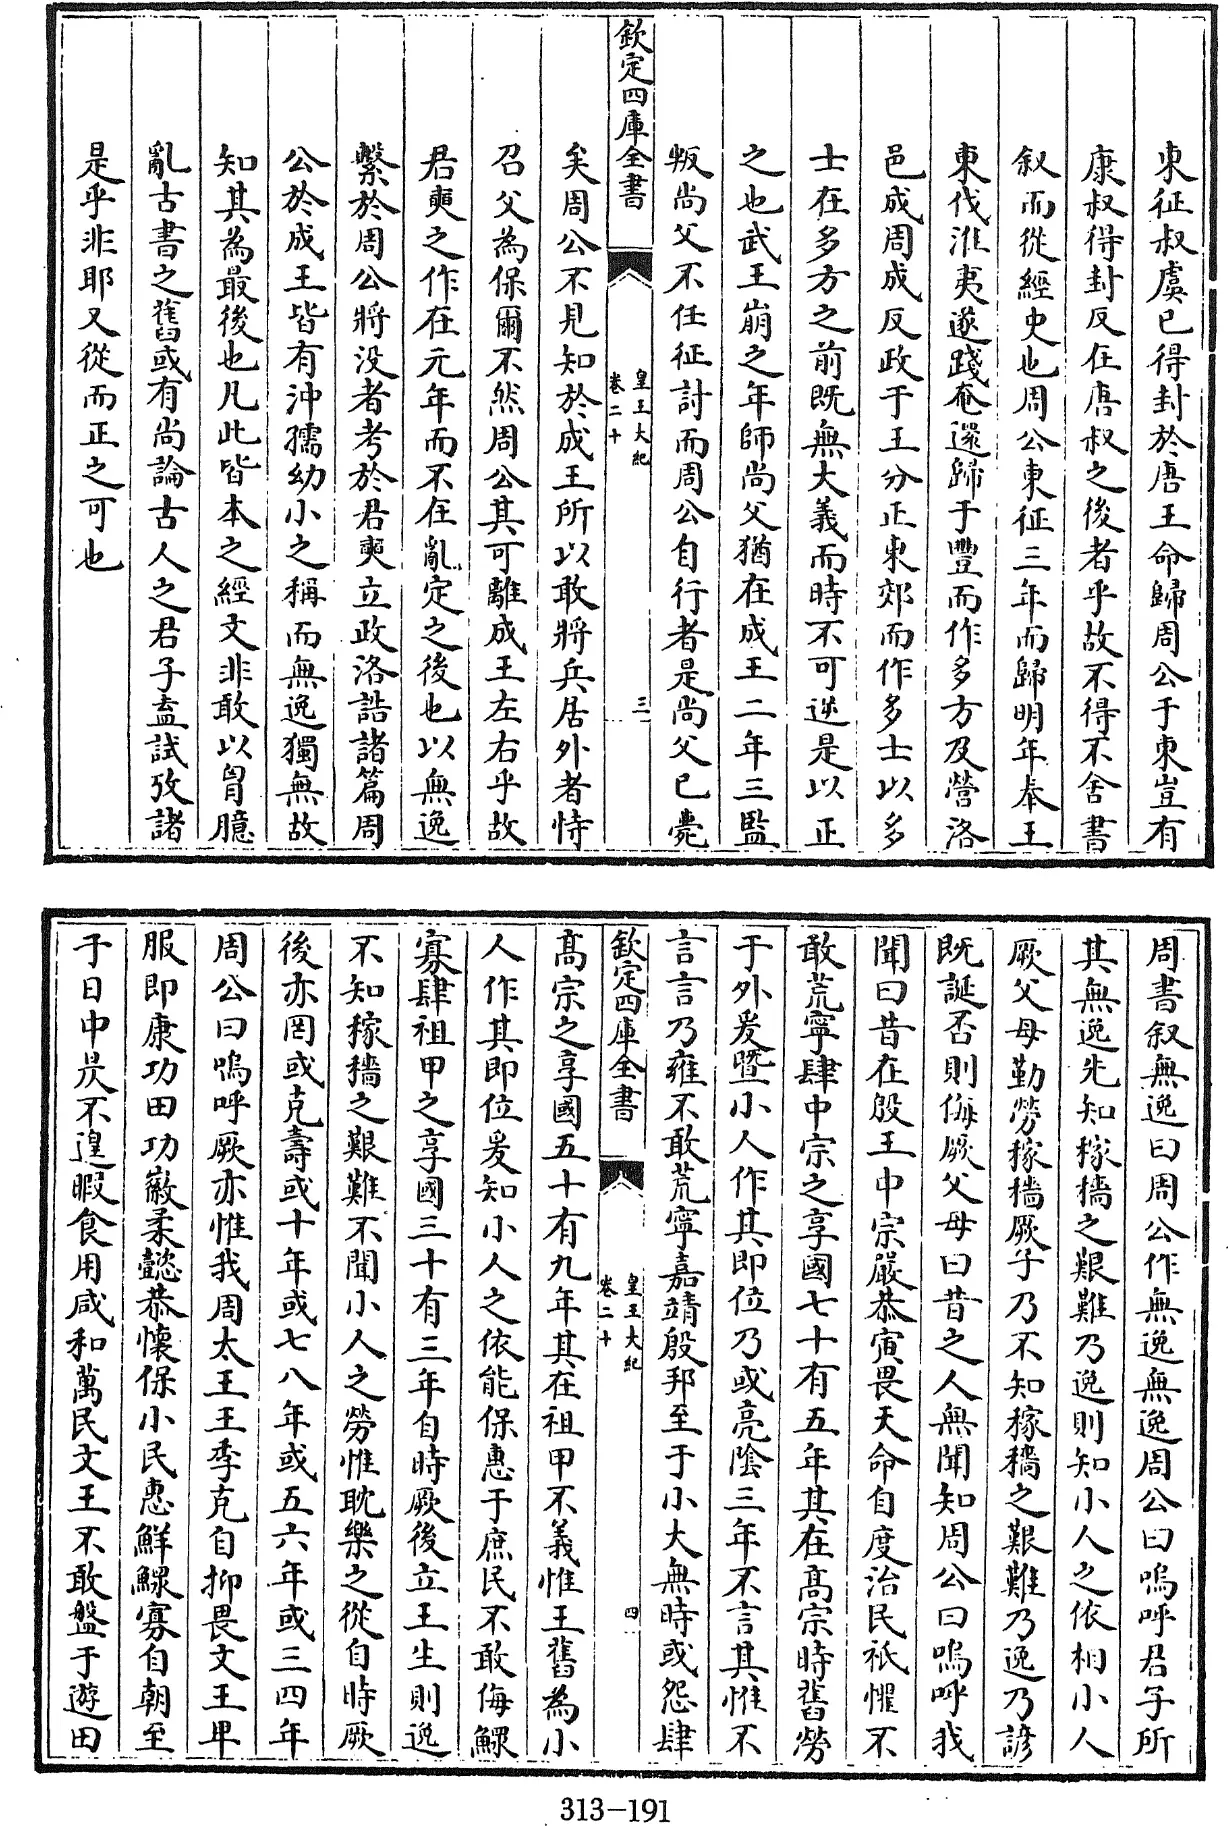 東征叔虞已得封於唐王命歸周公于東豈有
康叔得封反在唐叔之後者乎故不得不舍書
叙而從經史也周公東征三年而歸明年奉王
東伐淮夷遂踐奄還歸于豐而作多方及營洛
邑成周成反政于王分正東郊而作多士以多
士在多方之前既無大義而時不可逆是以正
之也武王崩之年師尚父猶在成王二年三監
叛尚父不任征討而周公自行者是尚父已薨
欽定四庫全書
皇王大紀
卷二十
三
矣周公不見知於成王所以敢將兵居外者恃
召父為保爾不然周公其可離成王左右乎故
君奭之作在元年而不在亂定之後也以無逸
繫於周公將没者考於君奭立政洛誥諸篇周
公於成王皆有沖孺幼小之稱而無逸獨無故
知其為最後也凡此皆本之經文非敢以胷臆
亂古書之舊或有尚論古人之君子盍試攷諸
是乎非耶又從而正之可也
周書叙無逸曰周公作無逸無逸周公曰嗚呼君子所
其無逸先知稼穡之艱難乃逸則知小人之依相小人
厥父母勤勞稼穡厥子乃不知稼穡之艱難乃逸乃諺
既誕否則侮厥父母曰昔之人無聞知周公曰嗚呼我
聞曰昔在殷王中宗嚴恭寅畏天命自度治民祇懼不
敢荒寧肆中宗之享國七十有五年其在高宗時舊勞
于外爰暨小人作其即位乃或亮陰三年不言其惟不
言言乃雍不敢荒寧嘉靖殷邦至于小大無時或怨肆
欽定四庫全書
皇王大紀
卷二十
四
高宗之享國五十有九年其在祖甲不義惟王舊為小
人作其即位爰知小人之依能保惠于庶民不敢侮鰥
寡肆祖甲之享國三十有三年自時厥後立王生則逸
不知稼穡之艱難不聞小人之勞惟耽樂之從自時厥
後亦罔或克壽或十年或七八年或五六年或三四年
周公曰嗚呼厥亦惟我周太王王季克自抑畏文王卑
服即康功田功徽柔懿恭懷保小民惠鮮鰥寡自朝至
于日中昃不遑暇食用咸和萬民文王不敢盤于遊田
313-191